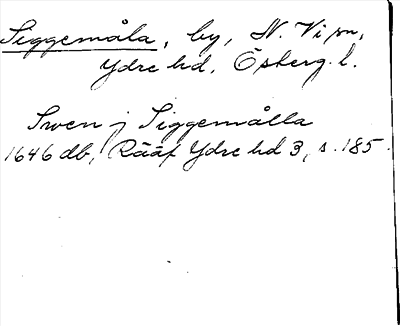 Siggemåla, by, N. Vi sn,
Ydre hd, Österg. l.
Swen j Siggemålla
1646 db, Rääf Ydre hd 3, s. 185.